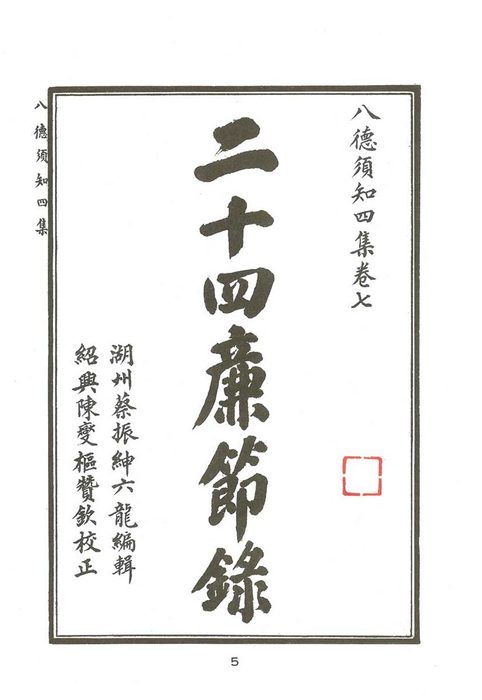 八德須知四集卷七
二十四廉節錄
湖州蔡振紳六龍編輯
紹興陳燮樞贊欽校正
八德須知四集
5